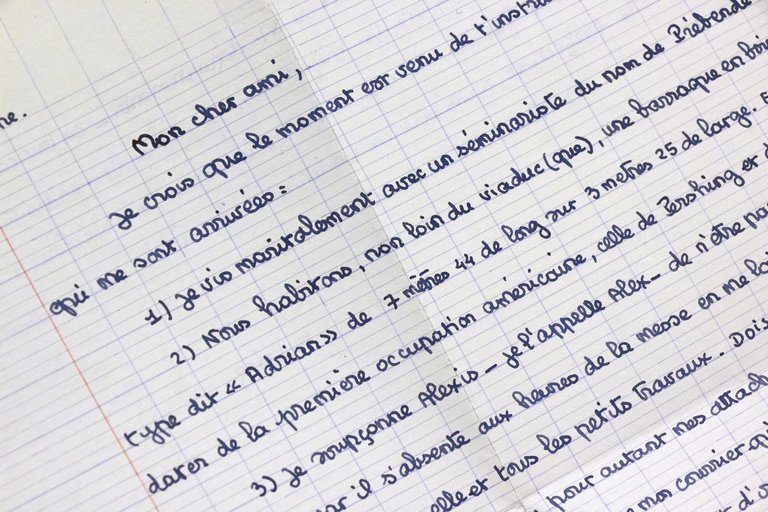 ne.
Mon cher ami,
Je crois que le moment est venu de t'instru
qui me sont arrivées :
1) Je vis maritalement avec un séminariste du nom de Priébende
2) Nous habitons, non loin du viaduc (que), une barraque en boi
type dit « Adrian » de 7 mètres 44 de long sur 3 mètres 25 de large. E
dater de la première occupation américaine, celle de Pershing et d
3) Je soupçonne Alexis – je l'appelle Alex – de n'être pas
car il s'absente aux heures de la messe en me lai
elle et tous les petits travaux. Dois
pour autant mes attach
mon courrier
d'o